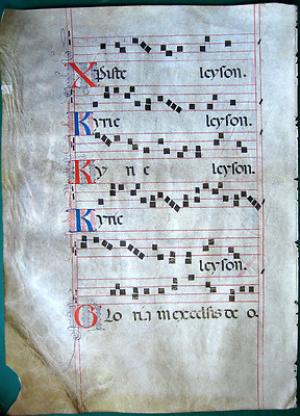 Xpiste leyson.
Kyrie leyson.
Ky ri e leyson.
Kyrie
leyson.
Glo ria in excelsis de o.